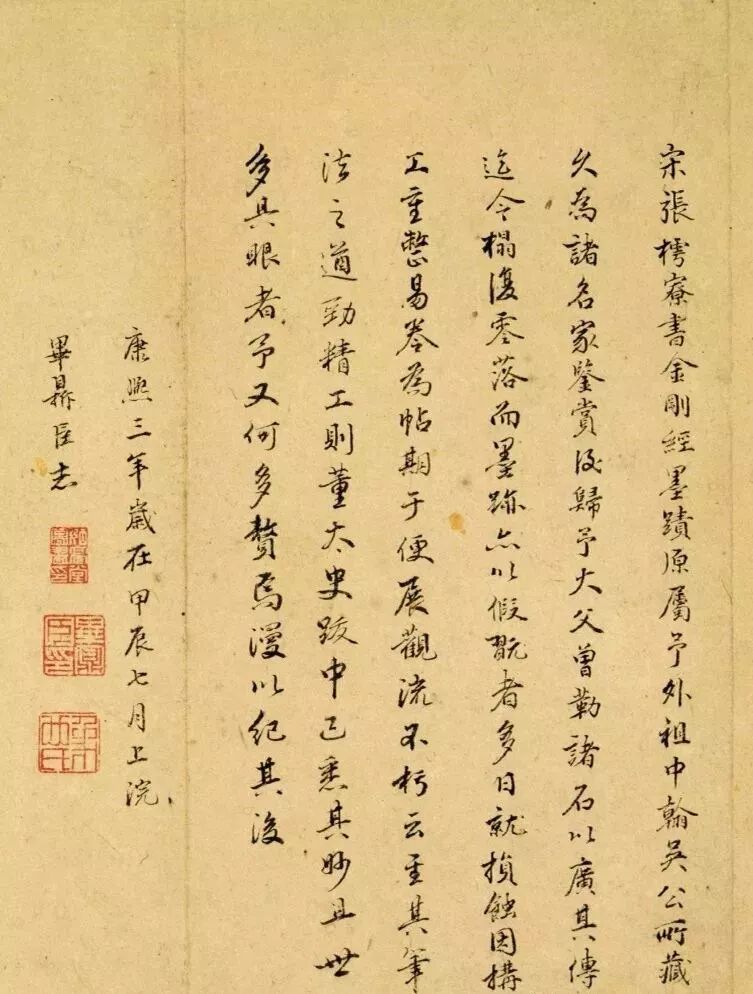 宋張樗寮書金剛經墨蹟原屬予外祖中翰吳公所藏
久為諸名家鑒賞後歸予大父曾勒諸石以廣其傳
迄今榻復零落而墨跡亦以假翫者多日就損蝕因搆
工重整易卷為帖期于便展觀流不朽云至其筆
法之遒勁精工則董太史跋中已悉其妙且世
多具眼者予又何多贅焉漫以紀其後
康熙三年歲在甲辰七月上浣
畢鼎臣志